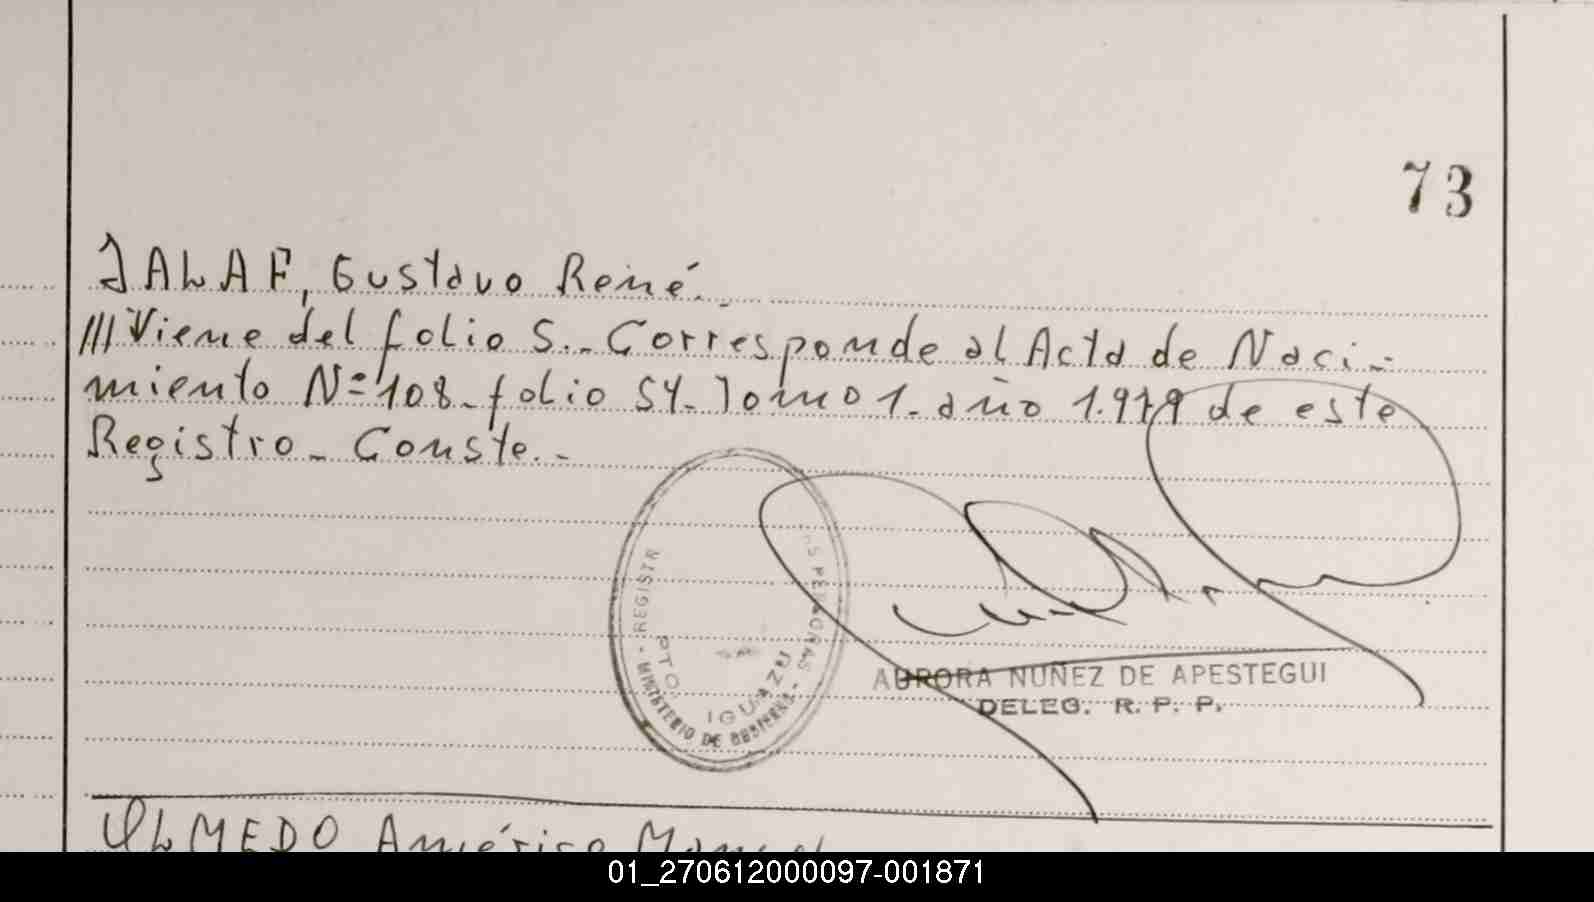 73
JALAF, Gustavo René.
///Viene del folio S._ Corresponde al Acta de Naci-
miento Nº 108_ folio 54_ Tomo 1. año 1.979 de este
Registro_ Conste._
REGISTR
PTO. IGUAZU
MINISTERIO DE GOBIERNO
AURORA NUÑEZ DE APESTEGUI
DELEG. R. P. P.
OLMEDO Américo Manuel
01_270612000097-001871